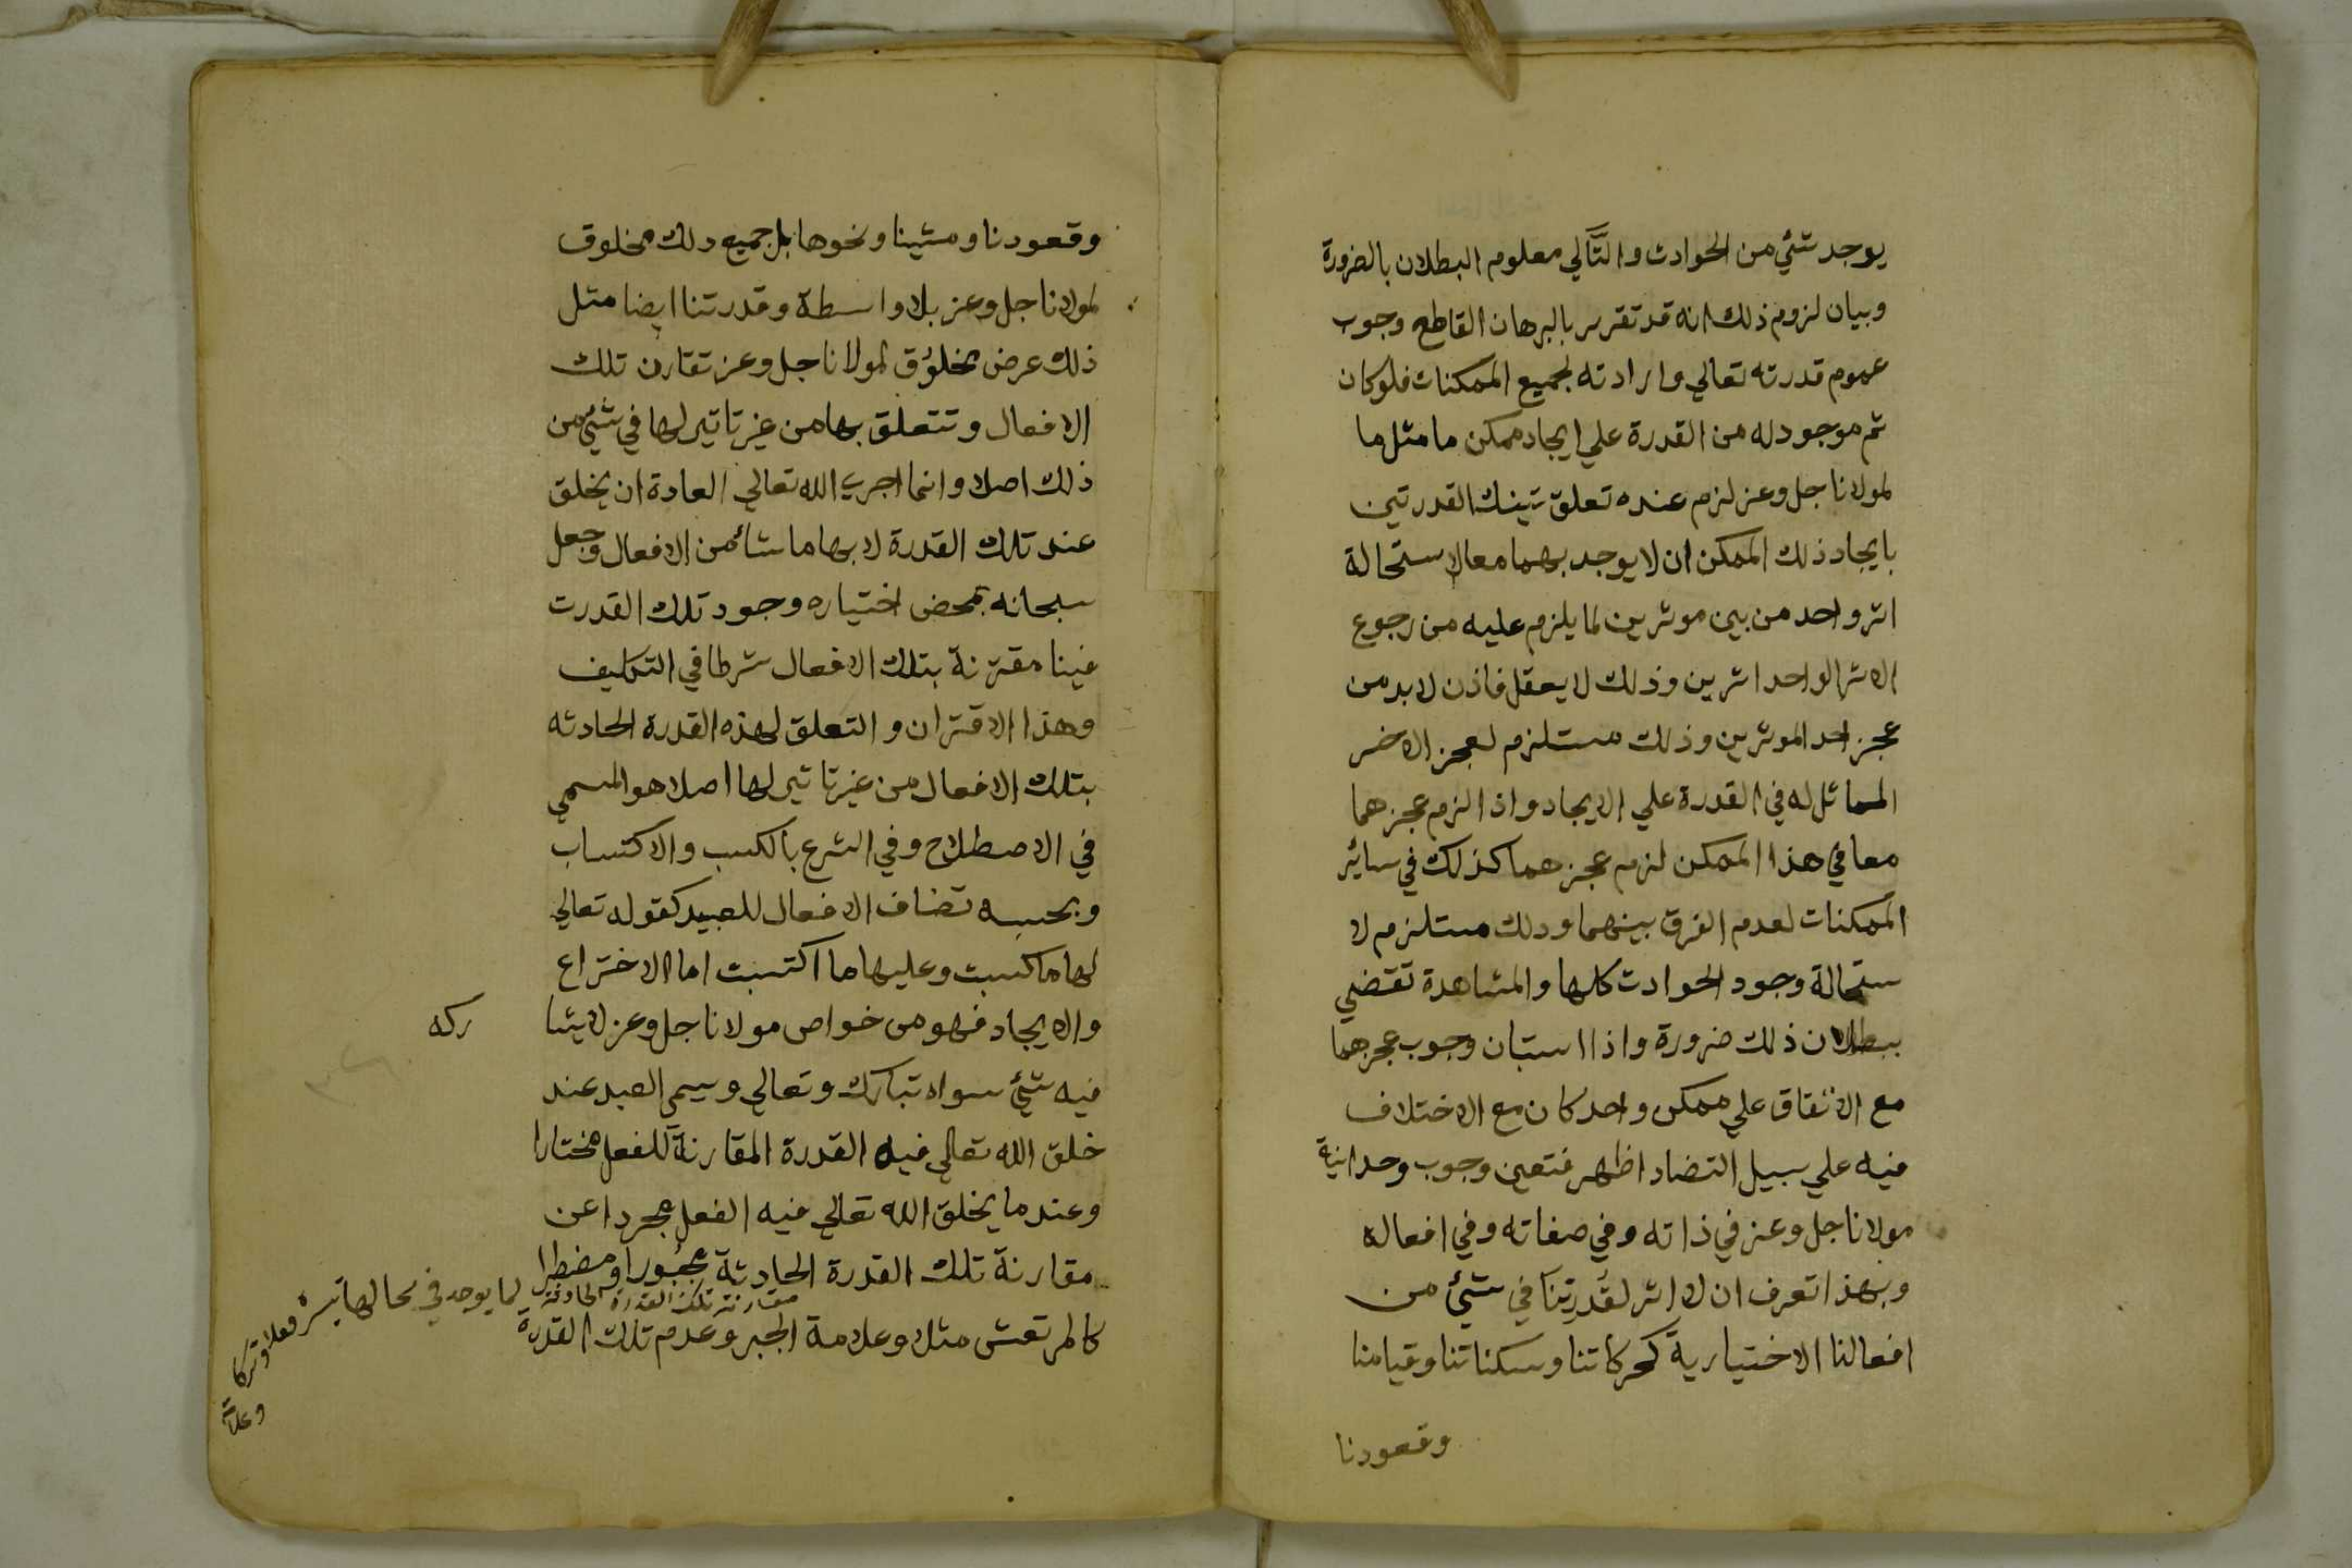 يوجد شئ من الحوادث والتَّالي معلوم البطلان بالضرورة
وبيان لزوم ذلك انه قد تقرر بالبرهان القاطع وجوب
عموم قدرته تعالي وارادته لجميع الممكنات فلو كان
ثم موجود له من القدرة علي ايجاد ممكن ما مثل ما
لمولانا جل وعز لزم عنده تعلق تينك القدرتين
بايجاد ذلك الممكن ان لا يوجد بهما معا لاستحالة
اثر واحد من بين موثرين لما يلزم عليه من رجوع
الاثر الواحد اثرين وذلك لا يعقل فاذن لا بد من
عجز احد الموثرين وذلك مستلزم لعجز الاخر
المماثل له في القدرة علي الايجاد واذا لزم عجزهما
معا في هذا الممكن لزم عجزهما كذلك في سائر
الممكنات لعدم الفرق بينهما ودلك مستلزم لا
ستحالة وجود الحوادث كلها والمشاهدة تقضي
ببطلان ذلك ضرورة واذا استبان وجوب عجزهما
مع الاتفاق علي ممكن واحد كان مع الاختلاف
فيه علي سبيل التضاد اظهر فتعين وجوب وحدانية
مولانا جل وعز في ذاته وفي صفاته وفي افعاله
وبهذا تعرف ان لا اثر لقُدرتِنا في شئ من
افعالنا الاختيارية كحركاتنا وسكناتنا وقيامنا
وقعودنا
وقعودنا ومشينا ونحوها بل جميع دلك مخلوق
لمولانا جل وعز بلا واسطة وقدرتنا ايضا مثل
ذلك عرض مخلوُق لمولانا جل وعز تقارن تلك
الافعال وتتعلق بها من غير تاتير لها في شئ من
ذلك اصلا وانما اجري الله تعالي العادة ان يخلق
عند تلك القدرة لا بها ما شاء من الافعال وجعل
سبحانه بمحض اختياره وجود تلك القدرت
فينا مقترنة بتلك الافعال شرطا في التكليف
وهذا الاقتران والتعلق لهذه القدرة الحادثه
بتلك الافعال من غير تاتير لها اصلا هو المسمي
في الاصطلاح وفي الشرع بالكسب والاكتساب
وبحسبه تضاف الافعال للعبيد كقوله تعالي
لها ما كسبت وعليها ما اكتسبت اما الاختراع
والايجاد فهو من خواص مولانا جل وعز لا يشا
ركه
فيه شئ سواه تبارك وتعالي ويسمى العبد عند
خلق الله تعالي فيه القدرة المقارنة للفعل مختارا
وعند ما يخلق الله تعالي فيه الفعل مجردا عن
مقارنة تلك القدرة الحادثة مجبورا ومضطرا
كالمرتعش مثلا وعلامة الجبر وعدم تلك القدرة
مقارنة تلك القدرة الحادثة
لما يوجد في محالها تيسره فعلا وتركا
وعلامة